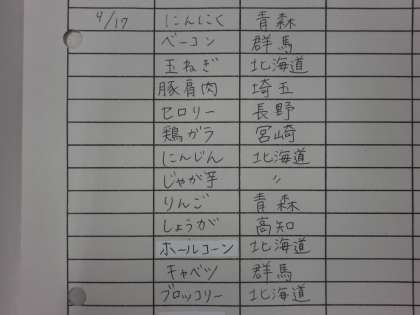 9/17 にんにく 青森
ベーコン 群馬
玉ねぎ 北海道
豚肩肉 埼玉
セロリー 長野
鶏ガラ 宮崎
にんじん 北海道
じゃが芋 〃
りんご 青森
しょうが 高知
ホールコーン 北海道
キャベツ 群馬
ブロッコリー 北海道